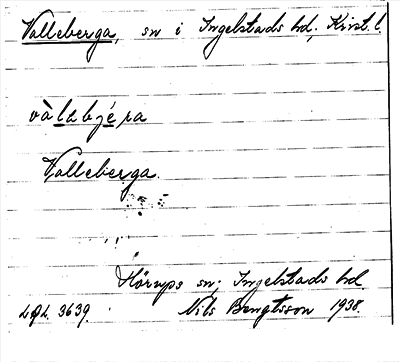 Valleberga, sn i Ingelstads hd, Krist. l.
vàlabjéra
Valleberga.
Hörups sn; Ingelstads hd
LAL 3639. Nils Bengtsson 1938.